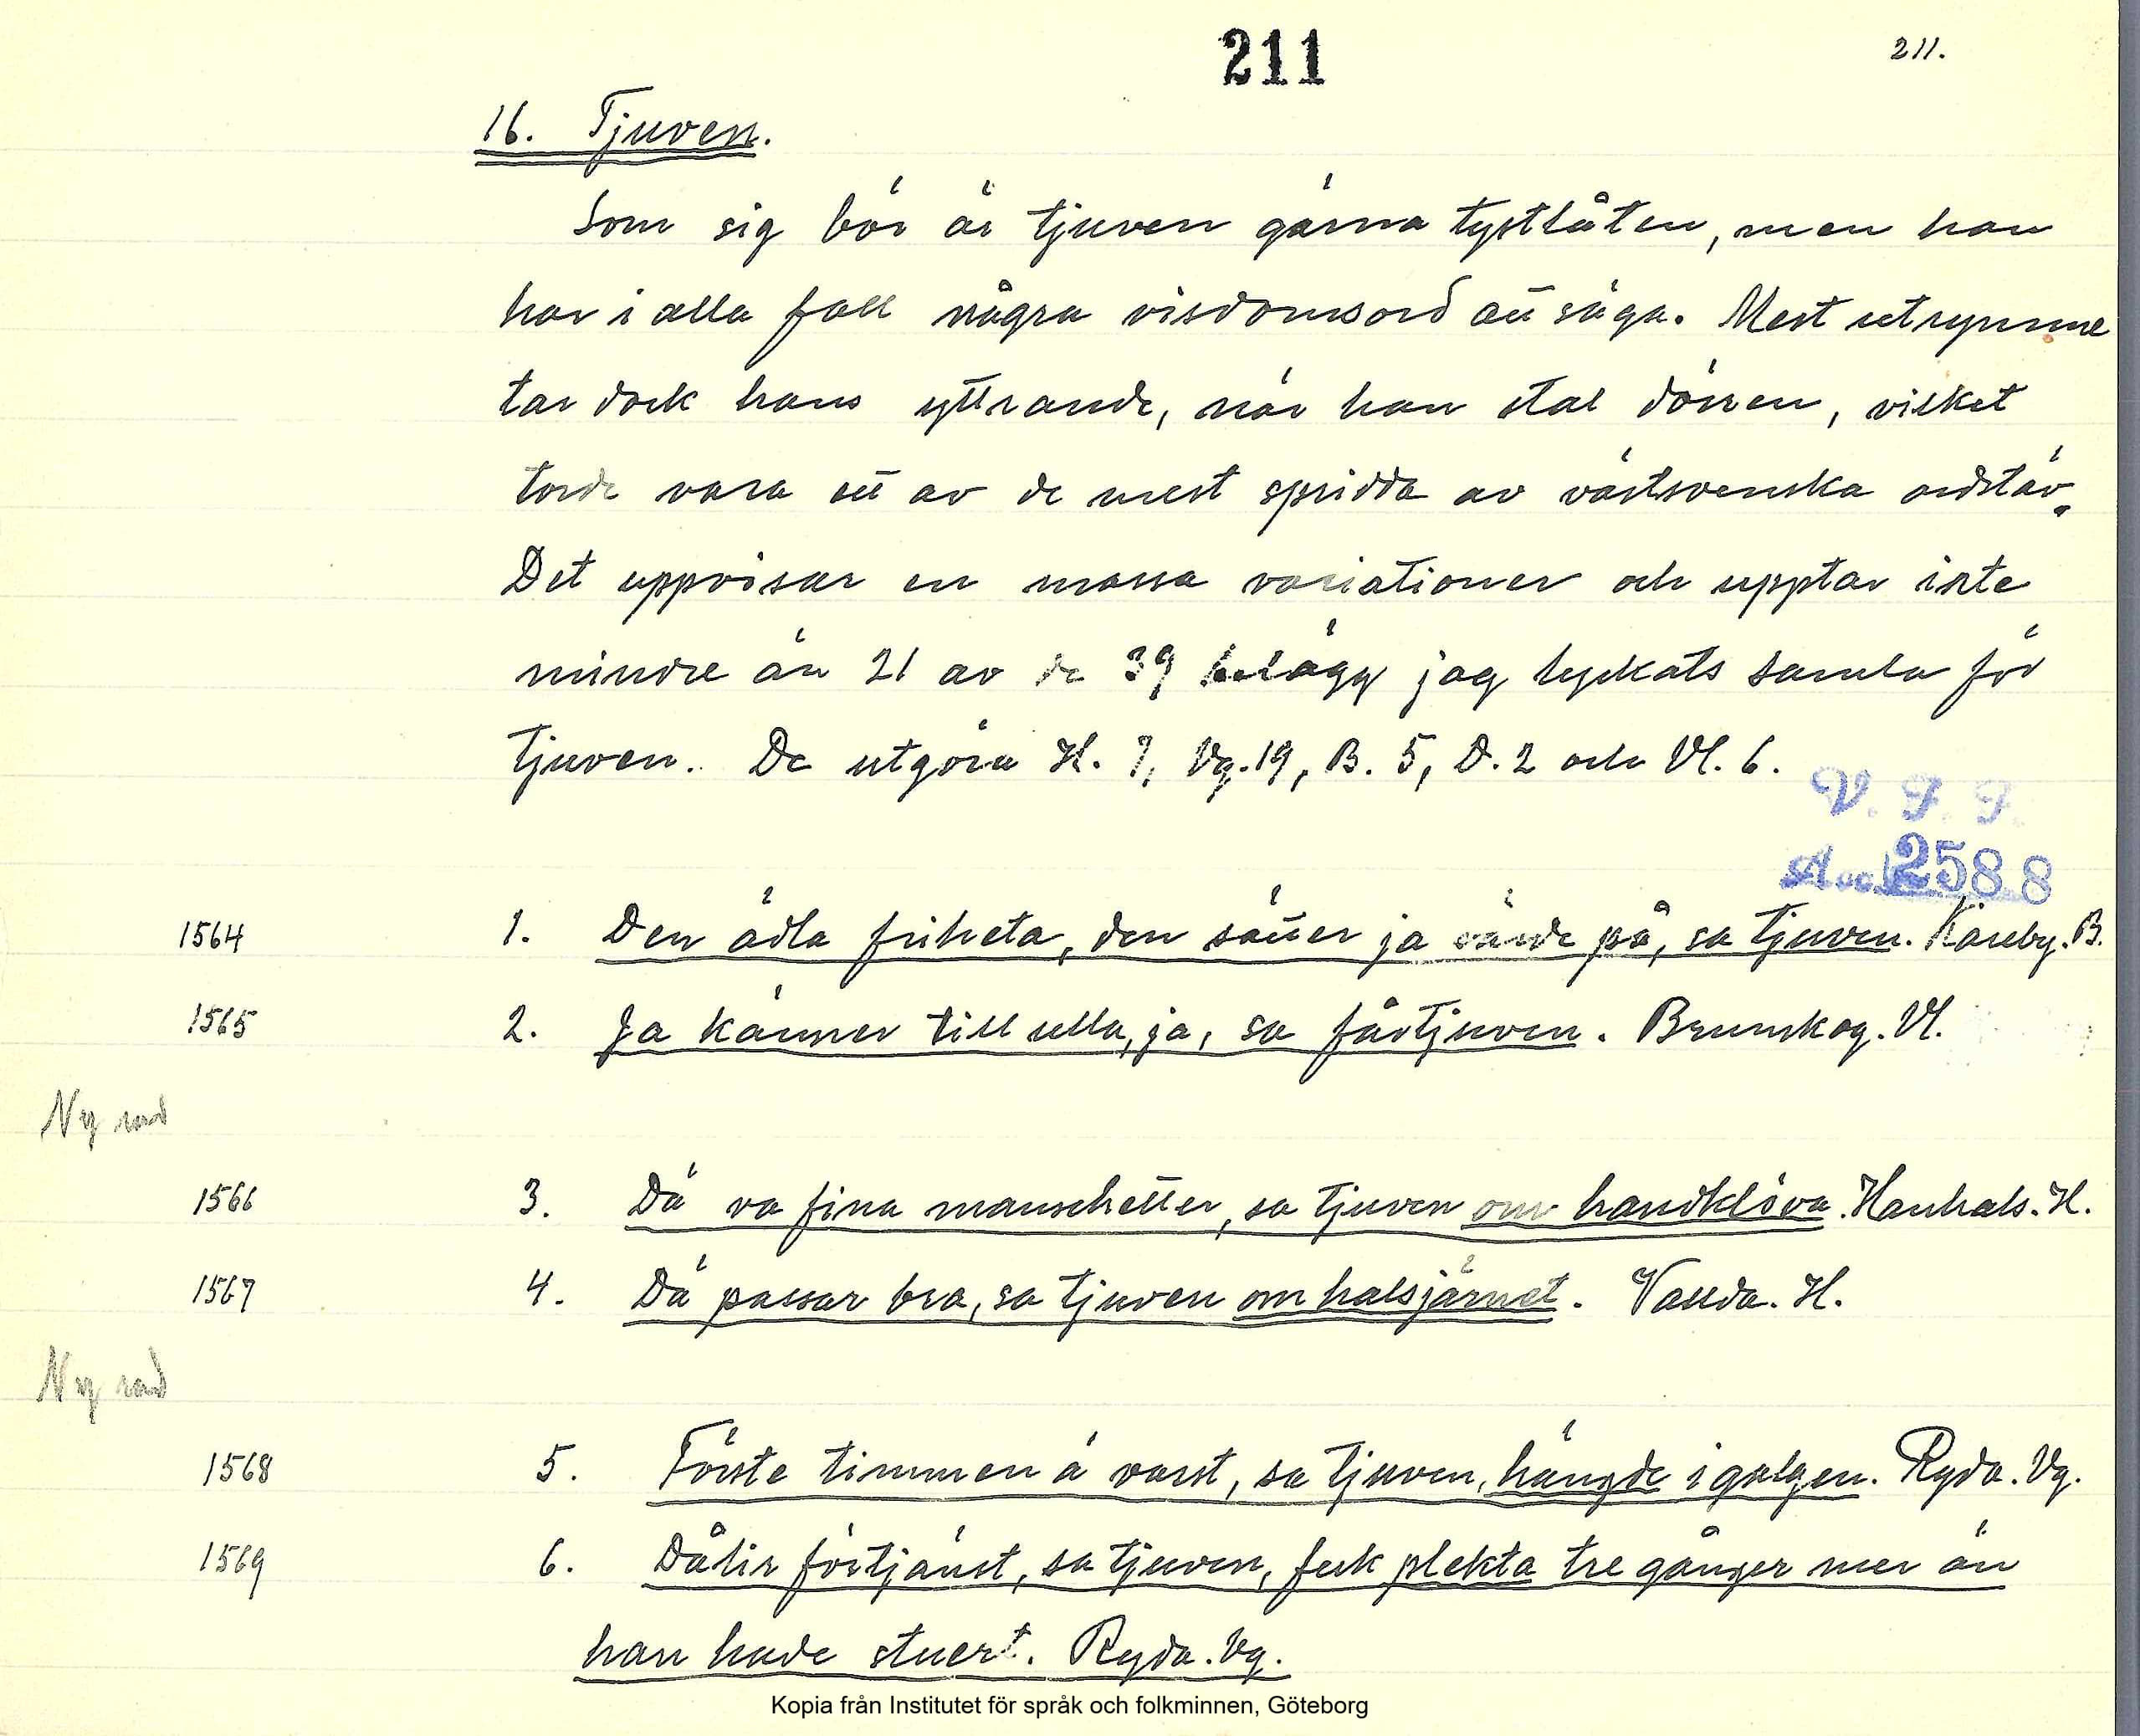 211
211.
16. Tjuven.
Som sig bör är tjuven gärna tystlåten, men han
har i alla fall några visdomsord att säga. Mest utrymme
tar dock hans yttrande, när han stal dörren, vilket
torde vara ett av de mest spridda av västsvenska ordstäv.
Det uppvisar en massa variationer och upptar inte
mindre än 21 av de 39 belägg jag lyckats samla för
tjuven. De utgöra H. 7, Vg. 19, B. 5, D. 2 och Vl. 6.
V. F. F.
Acc 2588
1564 1. Den ädla friheta, den sätter ja värde på, sa tjuven. Kareby. B.
1565 2. Ja känner till ulla, ja, sa fårtjuven. Brunskog. Vl.
Ny rad
1566 3. Dä va fina manschetter, sa tjuven om handklöva. Hanhals. H.
1567 4. Dä passar bra, sa tjuven om halsjärnet. Valda. H.
Ny rad
1568 5. Förste timmen ä varst, sa tjuven, hängde i galgen. Ryda. Vg.
1569 6. Dålir förtjänst, sa tjuven, feck plekta tre gånger mer än
han hade stuert. Ryda. Vg.
Kopia från Institutet för språk och folkminnen, Göteborg